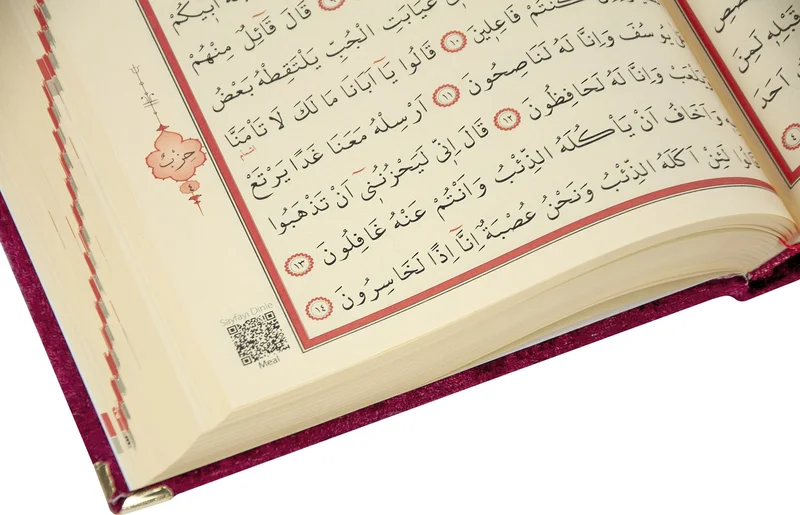 ابيكم
قَالَ قَٓائِلٌ مِنْهُمْ
غَيَابَتِ الْجُبِّ يَلْتَقِطْهُ بَعْضُ
كُنْتُمْ فَاعِلٖينَ ١٠ قَالُوا يَٓا اَبَانَا مَا لَكَ لَا تَأْمَنَّا
يُوسُفَ وَاِنَّا لَهُ لَنَاصِحُونَ ١١ اَرْسِلْهُ مَعَنَا غَدًا يَرْتَعْ
وَيَلْعَبْ وَاِنَّا لَهُ لَحَافِظُونَ ١٢ قَالَ اِنّٖي لَيَحْزُنُنٖٓي اَنْ تَذْهَبُوا
وَاَخَافُ اَنْ يَأْكُلَهُ الذِّئْبُ وَاَنْتُمْ عَنْهُ غَافِلُونَ ١٣
لَئِنْ اَكَلَهُ الذِّئْبُ وَنَحْنُ عُصْبَةٌ اِنَّٓا اِذًا لَخَاسِرُونَ ١٤
حزب
٤
Sayfayı Dinle
Meal
قَبْلِهٖ لَمِنَ
اَحَدَ
٤